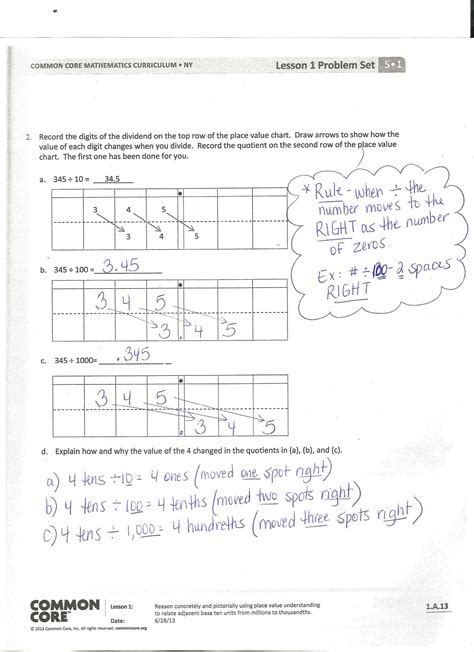 COMMON CORE MATHEMATICS CURRICULUM • NY
Lesson 1 Problem Set 5•1
2. Record the digits of the dividend on the top row of the place value chart. Draw arrows to show how the
value of each digit changes when you divide. Record the quotient on the second row of the place value
chart. The first one has been done for you.
a. 345 ÷ 10 = 34.5
3 4 5
3 4 5
* Rule - when ÷ the
number moves to the
RIGHT as the number
of zeros.
Ex: # ÷ 100 - 2 spaces
RIGHT
b. 345 ÷ 100 = 3.45
3 4 5
3 . 4 5
c. 345 ÷ 1000= .345
3 4 5
. 3 4 5
d. Explain how and why the value of the 4 changed in the quotients in (a), (b), and (c).
a) 4 tens ÷10 = 4 ones (moved one spot right)
b) 4 tens ÷ 100 = 4 tenths (moved two spots right)
c) 4 tens ÷ 1,000 = 4 hundreths (moved three spots right)
COMMON
CORE™
© 2013 Common Core, Inc. All rights reserved. commoncore.org
Lesson 1:
Date:
Reason concretely and pictorially using place value understanding
to relate adjacent base ten units from millions to thousandths.
6/28/13
1.A.13